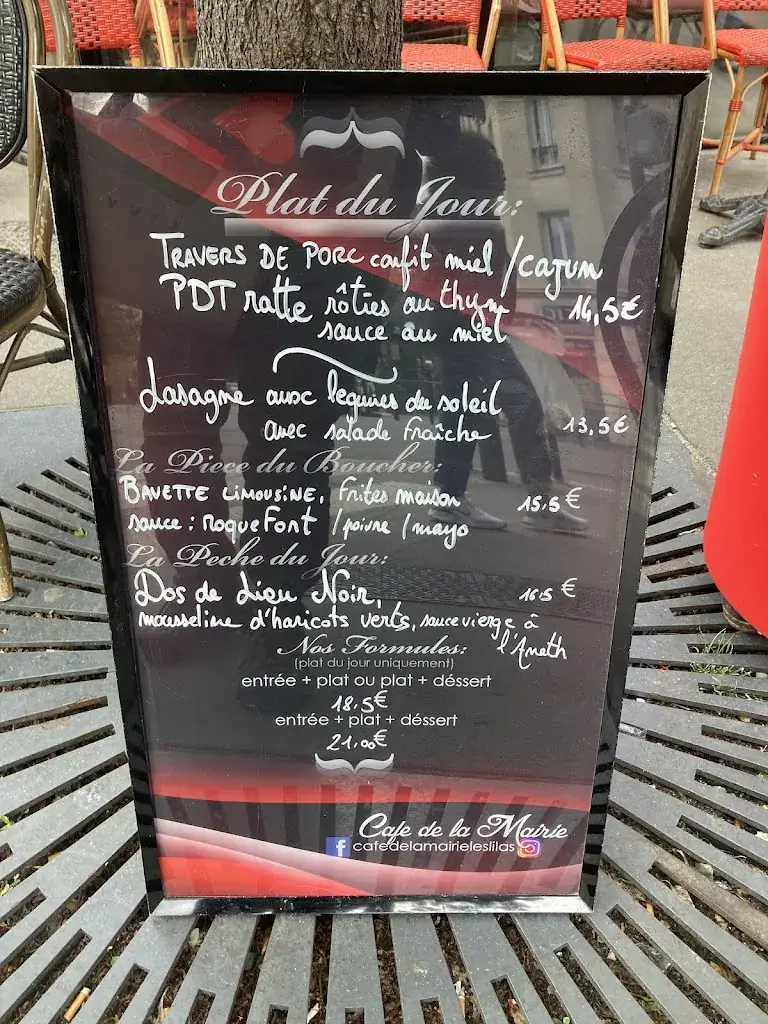 Plat du Jour:
TRAVERS DE PORC confit miel / cajun
PDT ratte rôties au thym 14,5€
sauce au miel
Lasagne avec legumes du soleil
avec salade Fraîche 13,5€
La Piece du Boucher:
BAVETTE LIMOUSINE, Frites maison 15,5€
sauce : roqueFort / poivre / mayo
La Peche du Jour:
Dos de Lieu Noir, 16,5€
mousseline d'haricots verts, sauce vierge à
l'Aneth
Nos Formules:
(plat du jour uniquement)
entrée + plat ou plat + déssert
18,5€
entrée + plat + déssert
21,00€
Cafe de la Mairie
cafedelamairieleslilas